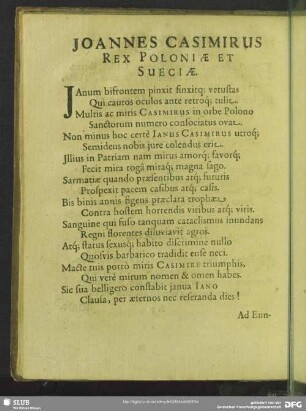 JOANNES CASIMIRUS
REX POLONIÆ ET
SUECIÆ.
JAnum bifrontem pinxit finxitq; vetustas
Qui cauros oculos ante retroq; tulit
Multis ac miris CASIMIRUS in orbe Polono
Sanctorum numero consociatus ovat
Non minus hoc certè IANUS CASIMIRUS utroq;
Semideus nobis jure colendus erit
Illius in Patriam nam mirus amorq; favorq;
Fecit mira togâ miraq; magna sago.
Sarmatiæ quando præsentibus atq; futuris
Prospexit pacem casibus atq; casis.
Bis binis annis figens præclara trophæa
Contra hostem horrendis viribus atq; viris.
Sanguine qui fuso tanquam cataclismus inundans
Regni florentes diluviavit agros.
Atq; status sexusq; habito discrimine nullo
Quosvis barbarico tradidit ense neci.
Macte tuis porrò miris CASIMIRE triumphis,
Qui verè mirum nomen & omen habes.
Sic sua belligero constabit janua IANO
Clausa, per æternos nec reseranda dies!
Ad Eun-
SLUB
DFG